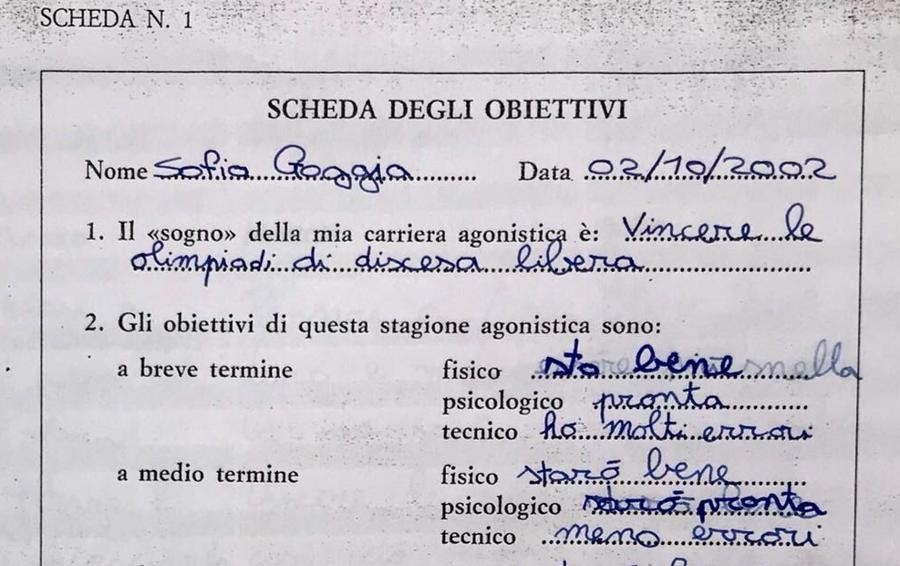 SCHEDA N. 1
SCHEDA DEGLI OBIETTIVI
Nome Sofia Goggia Data 02/10/2002
1. Il «sogno» della mia carriera agonistica è: Vincere le
olimpiadi di discesa libera
2. Gli obiettivi di questa stagione agonistica sono:
a breve termine fisico sto bene
psicologico pronta
tecnico ho molti errori
a medio termine fisico starò bene
psicologico starò pronta
tecnico meno errori